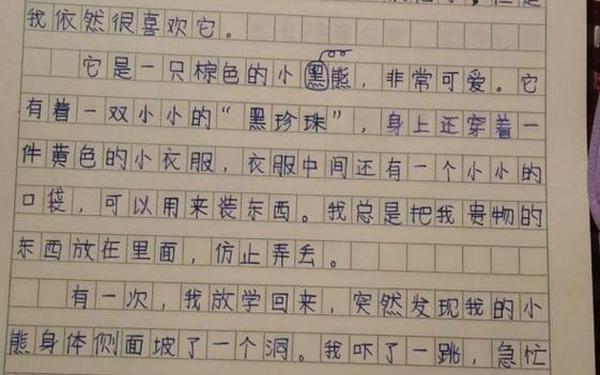 我依然很喜欢它。
它是一只棕色的小黑熊，非常可爱。它
有着一双小小的“黑珍珠”，身上还穿着一
件黄色的小衣服，衣服中间还有一个小小的
口袋，可以用来装东西。我总是把我贵物的
东西放在里面，仿止弄丢。
有一次，我放学回来，突然发现我的小
熊身体侧面坡了一个洞。我吓了一跳，急忙